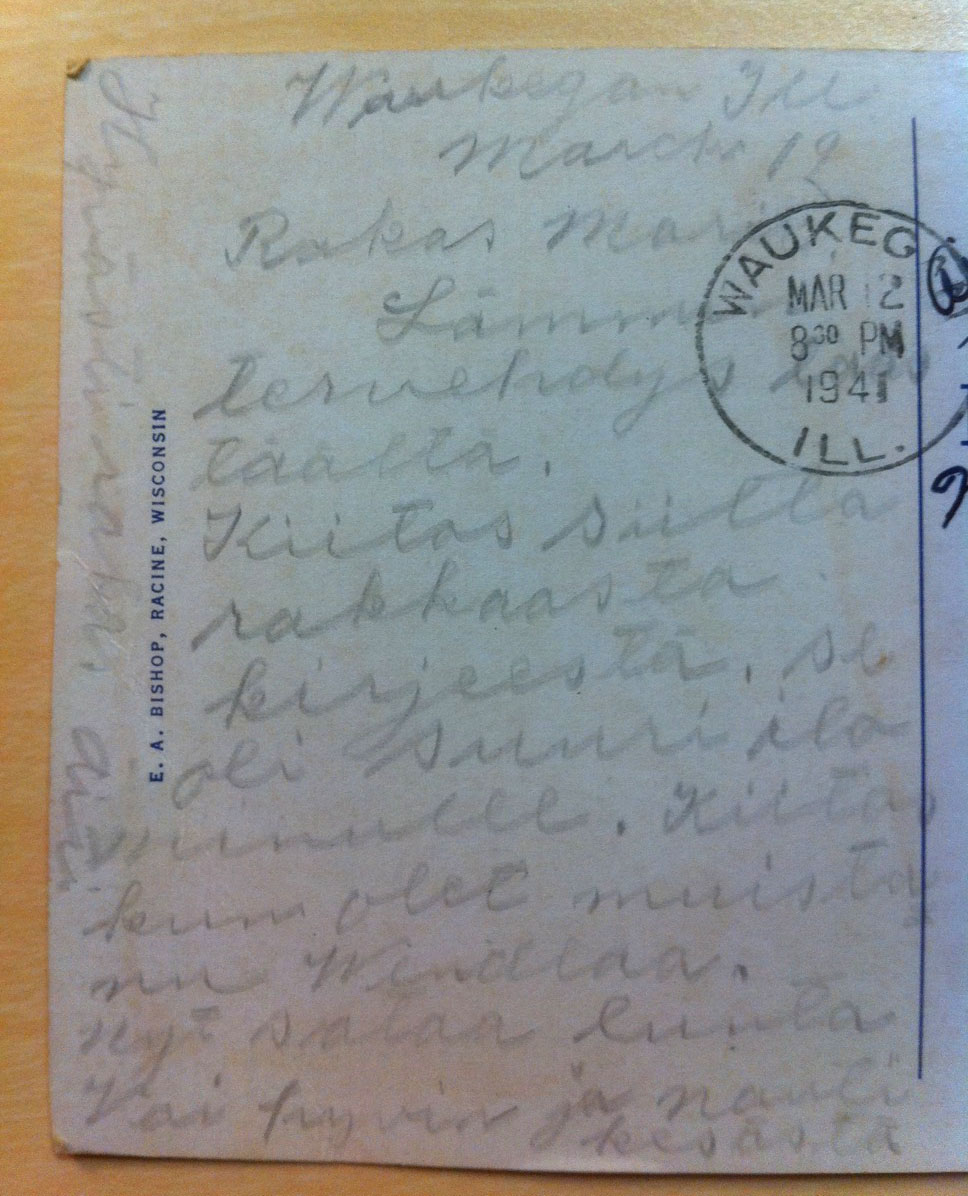 Waukegan Ill
March 12
Rakas Mari
Lämmin
tervehdys taas
täältä.
Kiitos siitta
rakkaasta
kirjeestä, se
oli suuri ilo
minulle. Kiitos
kun olet muista
nu Wendlaa.
Nyt sataa lunta
Voi hyvin ja nauti
kesästä
E. A. BISHOP, RACINE, WISCONSIN
WAUKEG
MAR 12
8 30 PM
1941
ILL.